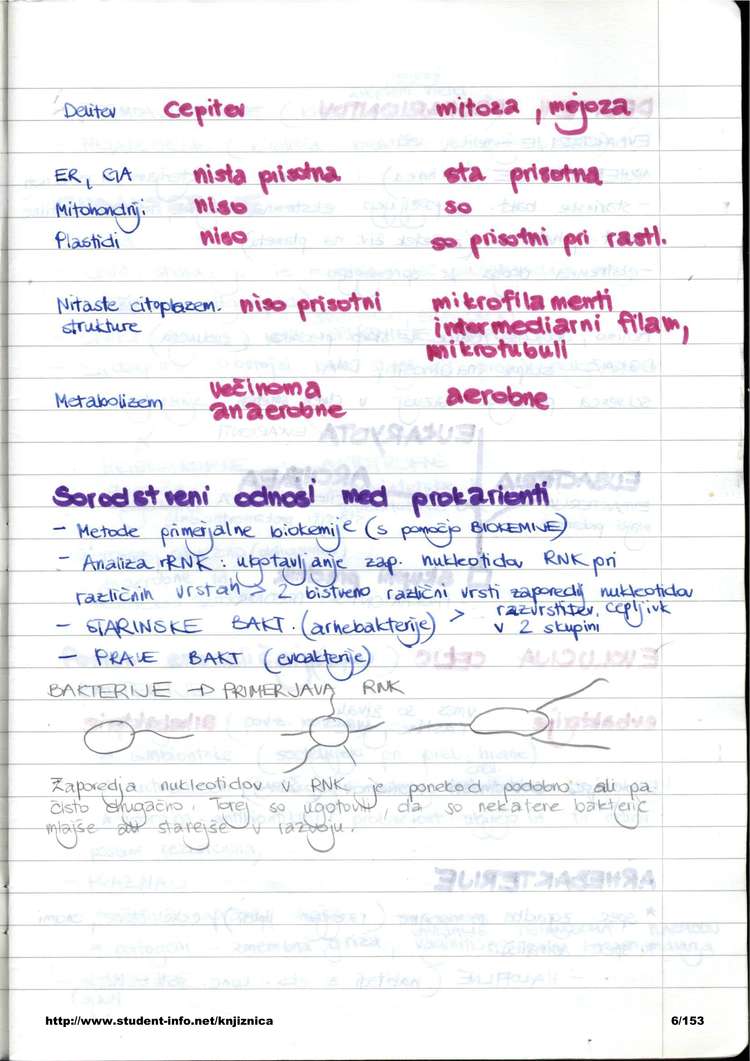 Delitev cepitev mitoza, mejoza
ER, GA nista prisotna sta prisotna
Mitohondriji niso so
Plastidi niso so prisotni pri rastl.
Nitaste citoplazem. niso prisotni mikrofilamenti
strukture intermediarni filam,
mikrotubuli
Metabolizem večinoma aerobne
anaerobne
Sorodstveni odnosi med prokarionti
- Metode primerjalne biokemije (s pomočjo BIOKEMIJE)
- Analiza rRNK : ugotavljanje zap. nukleotidov RNK pri
različnih vrstah > 2 bistveno različni vrsti zaporedij nukleotidov
- STARINSKE BAKT. (arhebakterije) > razvrstitev cepljivk
v 2 skupini
- PRAVE BAKT (evbakterije)
BAKTERIJE → PRIMERJAVA RNK
Zaporedja nukleotidov v RNK je ponekod podobno ali pa
čisto drugačno. Torej so ugotovili, da so nekatere bakterije
mlajše ali starejše v razvoju.
http://www.student-info.net/knjiznica 6/153